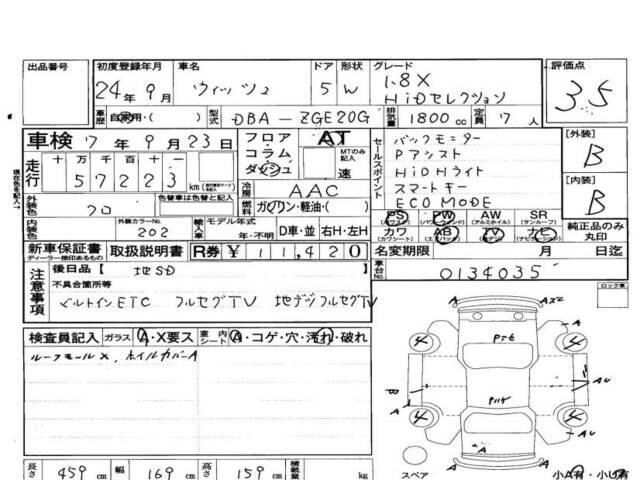 出品番号 初度登録年月 車名 ドア 形状 グレード 評価点
24年 9月 ウィッシュ 5 W 1.8X HiDセレクション 3.5
車歴 自家用・( ) 型式 DBA-ZGE20G 排気量 1800cc 定員 7人
車検 7年 9月 23日 フロア・コラム・ダッシュ AT セールスポイント バックモニター [外装]
走行 十 万 千 百 十 一 MTのみ記入 速 Pアシスト B
57223 km HiDライト
冷房 AAC スマートキー [内装]
外装色 クロ 色替車は色替と記入 燃料 ガソリン・軽油・( ) ECO MODE B
PS PW AW SR 純正品のみ丸印
内装色 外装カラーNo. 202 輸入車 モデル年式 年・不明 D車・並 右H・左H カワ AB TV ナビ
新車保証書 取扱説明書 R券 ¥11,420 名変期限 月 日迄
ディーラー捺印あるもの
注意事項 後日品【 地SD 】 車台No. 0134035
不具合箇所等 ロック車
ビルトインETC フルセグTV 地デジフルセグTV
検査員記入 ガラス A・X要ス 室内シート A・コゲ・穴・汚れ・破れ
ルーフモールX、ホイルカバーA
長さ 459cm 幅 169cm 高さ 159cm 積載量
A AX2
4 4 A
Pアセ
B A AU
Pハゲ
4 4 A
AU
A A
スペア 小A有・小U有
現在色を記入→